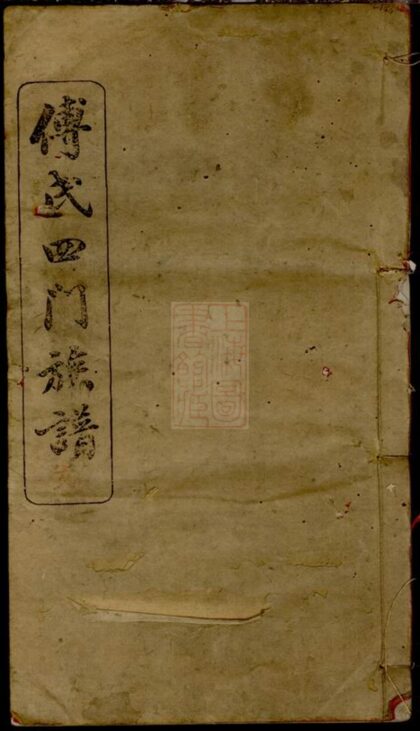 傅氏四門族譜
上海圖
書館藏